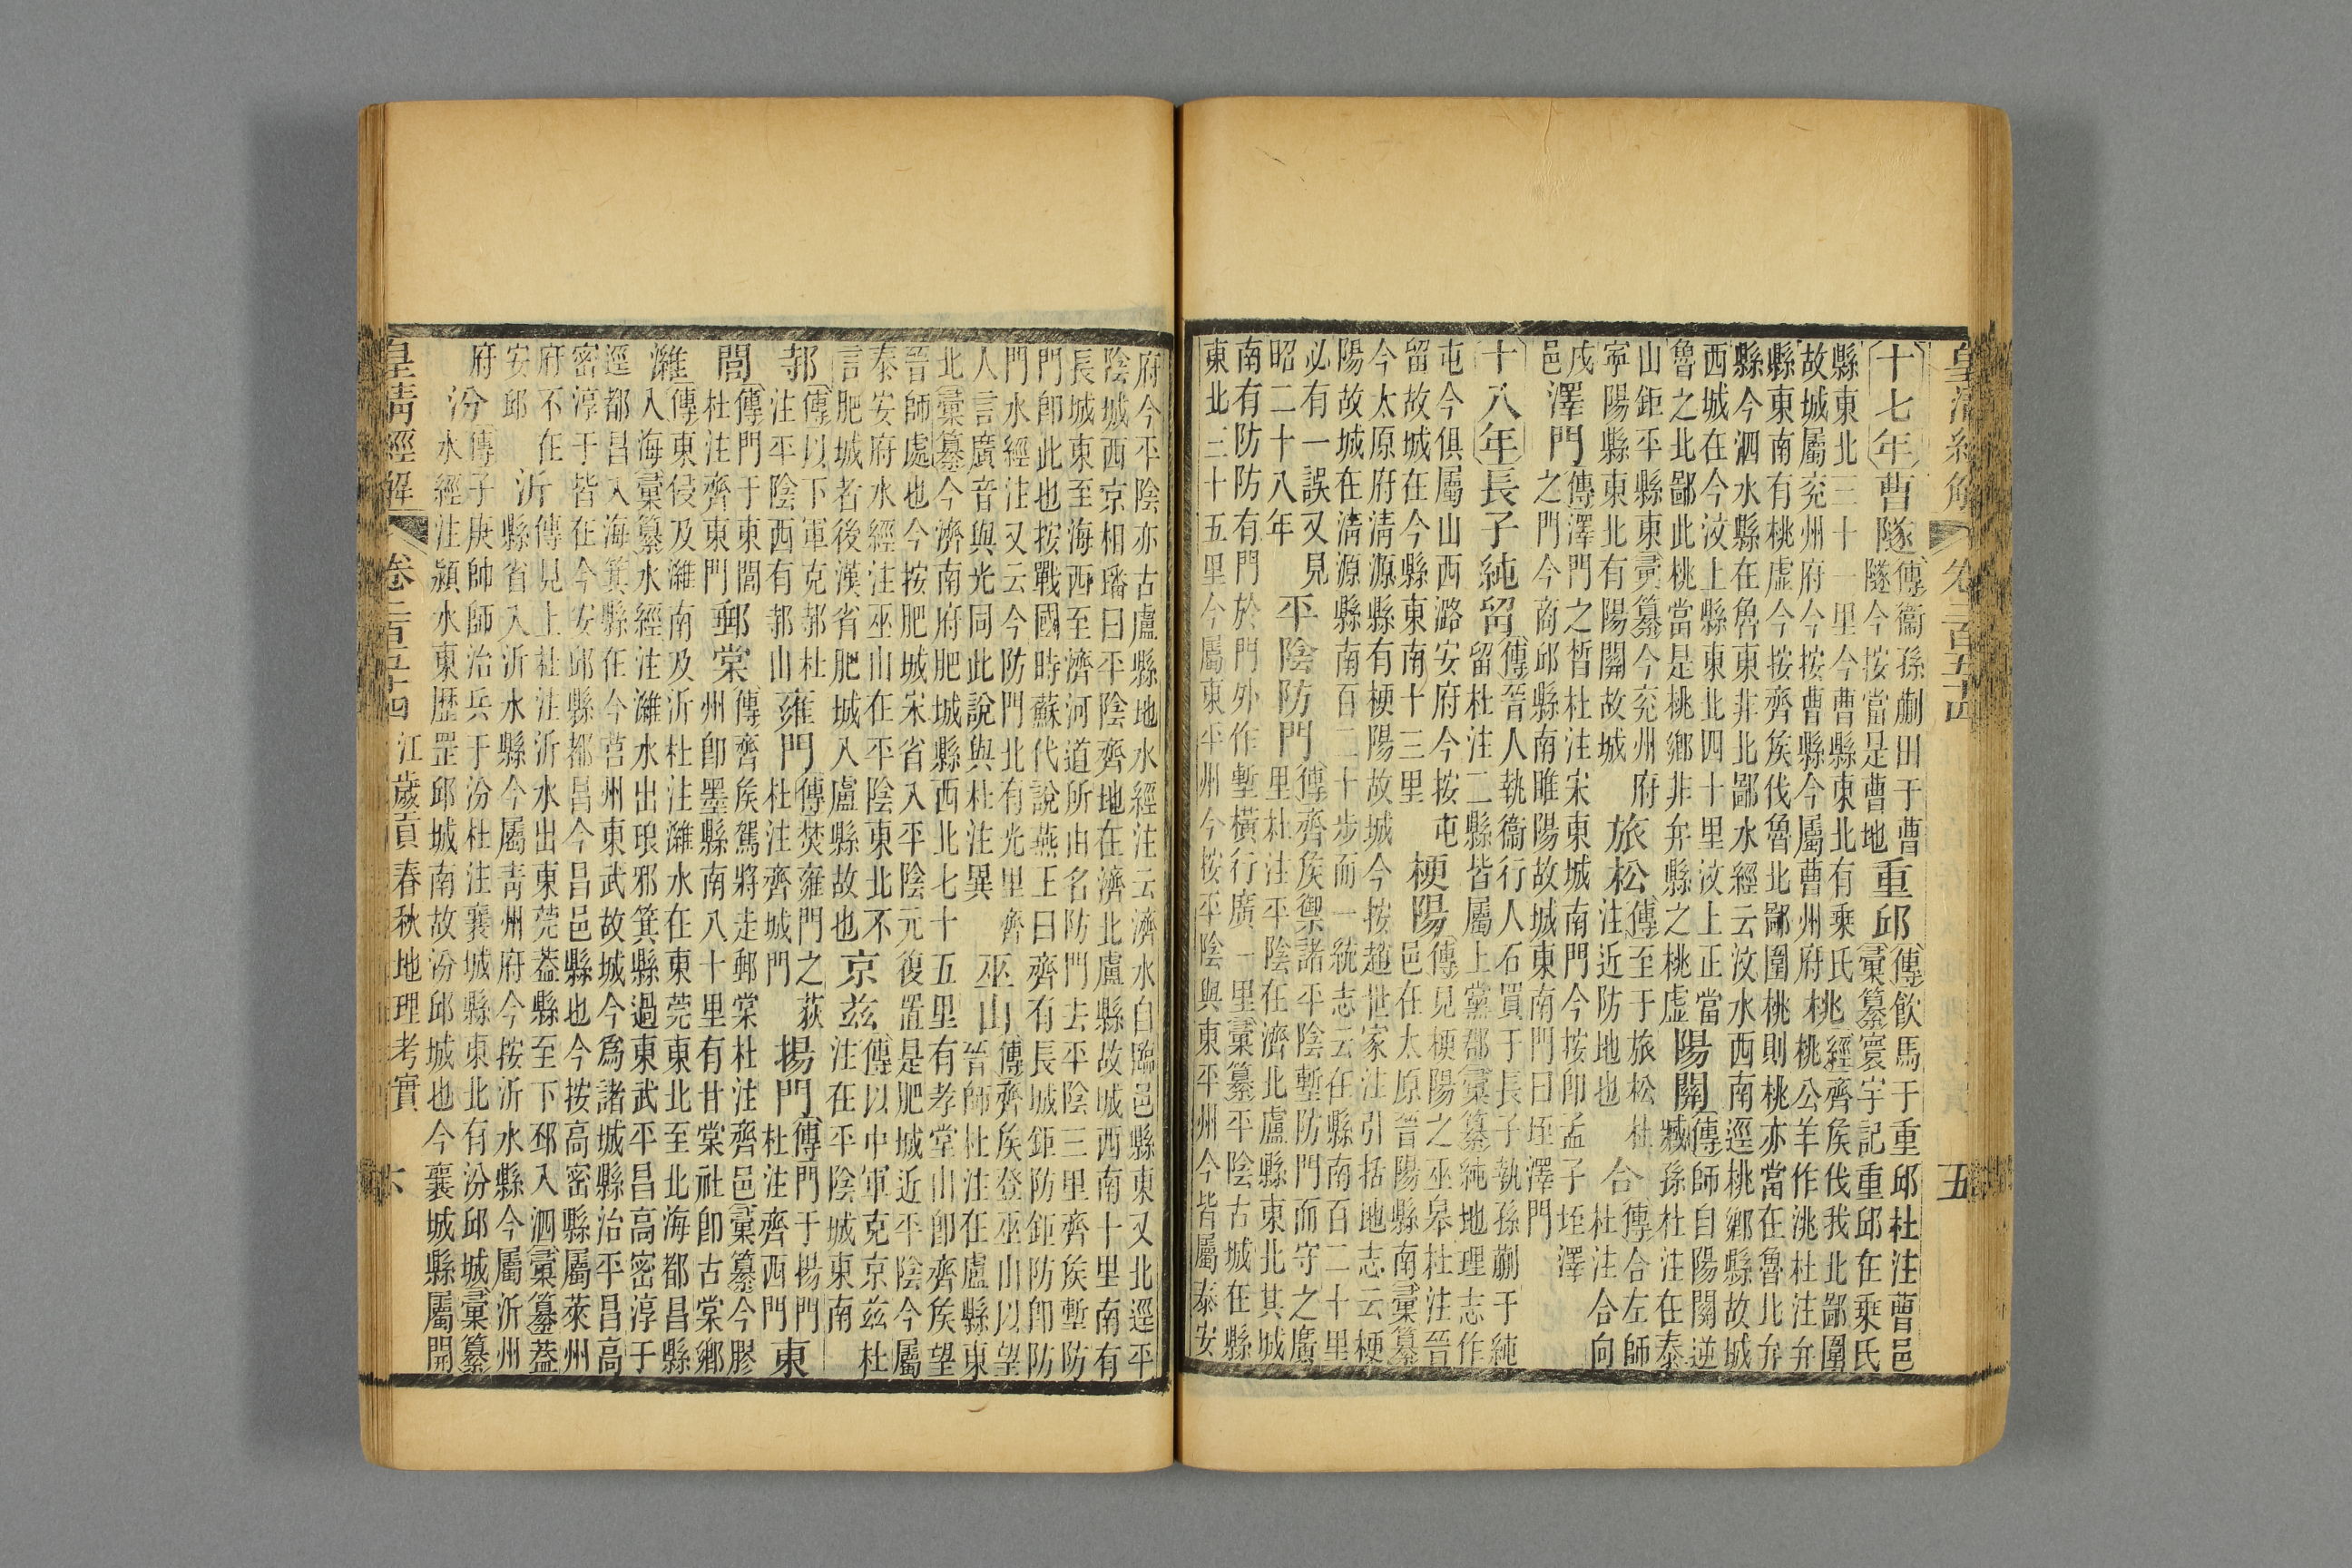 皇清經解 卷二百五十四 五
十七年 曹隧
傳衞孫蒯田于曹
隧今按當是曹地
重邱
傳飲馬于重邱杜注曹邑
彚纂寰宇記重邱在乗氏
縣東北三十一里今曹縣東北有乗氏
故城屬兖州府今按曹縣今屬曹州府
桃
經齊矦伐我北鄙圍
桃公羊作洮杜注弁
縣東南有桃虛今按齊矦伐魯北鄙圍桃則桃亦當在魯北弁
縣今泗水縣在魯東非北鄙水經云汶水西南逕桃鄉縣故城
西城在今汶上縣東北四十里汶上正當
魯之北鄙此桃當是桃鄉非弁縣之桃虛
陽關
傳師自陽關逆
臧孫杜注在泰
山鉅平縣東彚纂今兖州府
寧陽縣東北有陽關故城
旅松
傳至于旅松杜
注近防地也
合
傳合左師
杜注合向
戌
邑
澤門
傳澤門之晳杜注宋東城南門今按卽孟子垤澤
之門今商邱縣南睢陽故城東南門曰垤澤門
十八年 長子純留
傳晉人執衞行人石買于長子執孫蒯于純
留杜注二縣皆屬上黨郡彚纂純地理志作
屯今俱屬山西潞安府今按屯
留故城在今縣東南十三里
梗陽
傳見梗陽之巫皋杜注晉
邑在太原晉陽縣南彚纂
今太原府清源縣有梗陽故城今按趙世家注引括地志云梗
陽故城在清源縣南百二十步而一統志云在縣南百二十里
必有一誤又見
昭二十八年
平陰防門
傳齊矦禦諸平陰塹防門而守之廣
里杜注平陰在濟北盧縣東北其城
南有防防有門於門外作塹橫行廣一里彚纂平陰古城在縣
東北三十五里今屬東平州今按平陰與東平州今皆屬泰安
府今平陰亦古盧縣地水經注云濟水自臨邑縣東又北逕平
陰城西京相璠曰平陰齊地在濟北盧縣故城西南十里南有
長城東至海西至濟河道所由名防門去平陰三里齊矦塹防
門卽此也按戰國時蘇代說燕王曰齊有長城鉅防鉅防卽防
門水經注又云今防門北有光里齊
人言廣音與光同此說與杜注異
巫山
傳齊矦登巫山以望
晉師杜注在盧縣東
北彚纂今濟南府肥城縣西北七十五里有孝堂山卽齊矦望
晉師處也今按肥城宋省入平陰元復置是肥城近平陰今屬
泰安府水經注巫山在平陰東北不
言肥城者後漢省肥城入盧縣故也
京茲
傳以中軍克京茲杜
注在平陰城東南
邿
傳以下軍克邿杜
注平陰西有邿山
雍門
傳焚雍門之萩
杜注齊城門
揚門
傳門于揚門
杜注齊西門
東
閭
傳門于東閭
杜注齊東門
郵棠
傳齊矦駕將走郵棠杜注齊邑彚纂今膠
州卽墨縣南八十里有甘棠社卽古棠鄉
濰
傳東侵及濰南及沂杜注濰水在東莞東北至北海都昌縣
入海彚纂水經注濰水出琅邪箕縣過東武平昌高密淳于
逕都昌入海箕縣在今莒州東武故城今爲諸城縣治平昌高
密淳于皆在今安邱縣都昌今昌邑縣也今按高密縣屬萊州
府不在
安邱
沂
傳見上杜注沂水出東莞葢縣至下邳入泗彚纂葢
縣省入沂水縣今屬靑州府今按沂水縣今屬沂州
府
汾
傳子庚帥師治兵于汾杜注襄城縣東北有汾邱城彚纂
水經注潁水東歷罡邱城南故汾邱城也今襄城縣屬開
皇清經解 卷二百五十四 江歲貢春秋地理考實 六